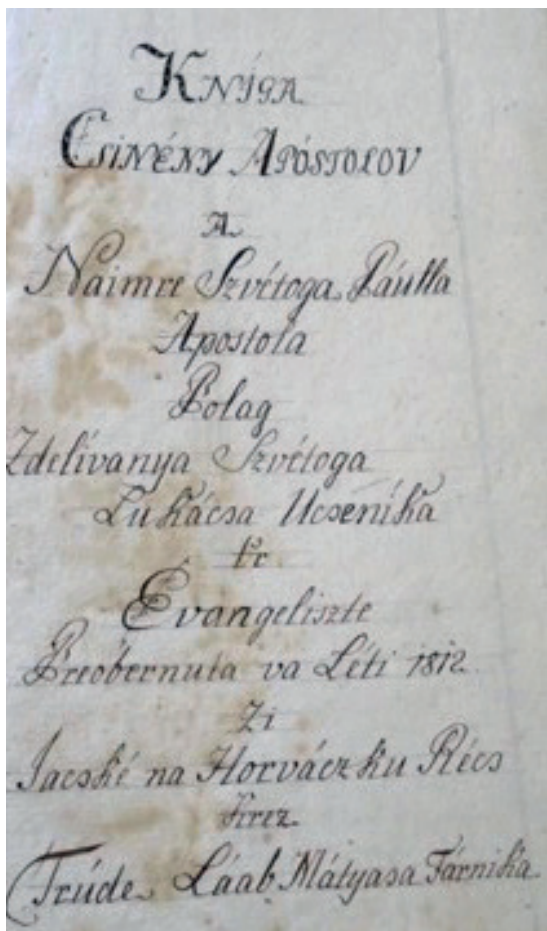 Kníga
Csinény Apóstolov
A
Naimre Szvétoga Páulla
Apostola
Polag
Zdelívanya Szvétoga
Lukácsa Ucseníka
tr
Evangeliszte
Preóbernuta va Léti 1812
Zi
Jacské na Horváczku Récs
Krez
Trúde Láab Mátyasa Fárnika